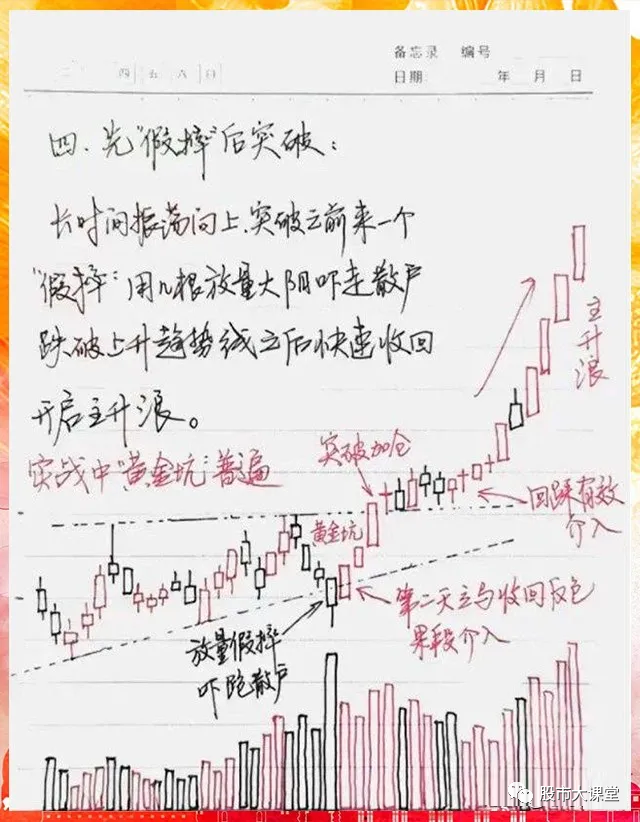 备忘录 编号
四 五 六 日
日期: 年 月 日
四、先"假摔"后突破：
长时间振荡向上，突破之前来一个
"假摔"：用几根放量大阴吓走散户
跌破上升趋势线之后快速收回
开启主升浪。
实战中"黄金坑"普遍
突破加仓
主升浪
黄金坑
回踩有效
介入
第二天立马收回反包
果断介入
放量假摔
吓跑散户
股市大课堂